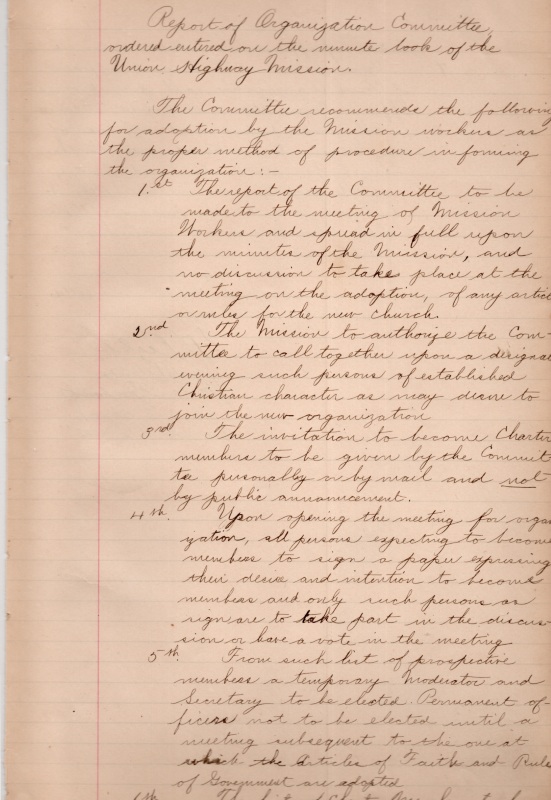 Report of Organization Committee,
ordered entered on the minute book of the
Union Highway Mission.
The Committee recommends the following
for adoption by the Mission workers as
the proper method of procedure in forming
the organization:—
1.st The report of the Committee to be
made to the meeting of Mission
Workers and spread in full upon
the minutes of the Mission, and
no discussion to take place at the
meeting on the adoption, of any article
or rules for the new church.
2nd The Mission to authorize the Com-
mittee to call together upon a designa
evening such persons of established
Christian character as may desire to
join the new organization
3rd The invitation to become Charter
members to be given by the Committ
tee personally or by mail and not
by public announcement.
4th. Upon opening the meeting for organ
ization, all persons expecting to become
members to sign a paper expressing
their desire and intention to become
members and only such persons as
sign are to take part in the discus-
sion or have a vote in the meeting
5th. From such list of prospective
members a temporary Moderator and
Secretary to be elected. Permanent of-
ficers not to be elected until a
meeting subsequent to the one at
which the Articles of Faith and Rules
of Government are adopted
6th. The list of Charter